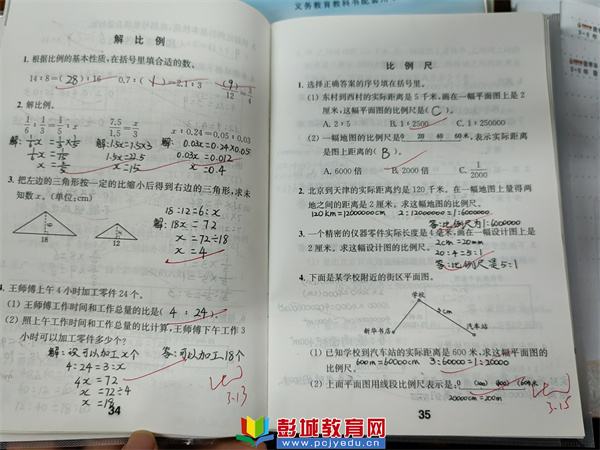 义务教育教科书配套
解 比 例
1. 根据比例的基本性质,在括号里填合适的数。
14:8=(28):16 0.7:(1)=2.1:3 (9)/12=3/4
2. 解比例。
x:0.24=0.05:0.03
解: 0.03x=0.24×0.05
1.5x=7.5×3
0.03x=0.012
1.5x=22.5
x=15
x=0.4
3. 把左边的三角形按一定的比缩小后得到右边的三角形,求未
知数 x。(单位:cm)
18:12=6:x
解: 18x=72
x=72÷18
x=4
18
12
4. 王师傅上午4小时加工零件24个。
(1) 王师傅工作时间和工作总量的比是(4:24)。
(2) 照上午工作时间和工作总量的比计算,王师傅下午工作3
小时可以加工零件多少个?
解:设可以加工x个 答:可以加工18个
4:24=3:x
4x=72
x=72÷4
x=18
3.13
34
比 例 尺
1. 选择正确答案的序号填在括号里。
(1) 东村到西村的实际距离是5千米,画在一幅平面图上是2
厘米,这幅平面图的比例尺是(C)。
A. 2:5 B. 1:2500
(2) 一幅地图的比例尺是 0 20 40 60千米,表示实际距离
是图上距离的(B)。
A. 6000倍 B. 2000000倍 C. 1/2000
2. 北京到天津的实际距离约是120千米,在一幅地图上量得两
地之间的距离是2厘米。求这幅地图的比例尺。
120km=12000000cm 2:12000000=1:6000000
答:比例尺为1:6000000
3. 一个精密的仪器零件实际长度是4毫米,画在一幅设计图上是
2厘米。求这幅设计图的比例尺。
2cm=20mm
20:4=5:1
答:比例尺是5:1
4. 下面是某学校附近的街区平面图。
学校
3cm
新华书店
汽车站
(1) 已知学校到汽车站的实际距离是600米,求这幅平面图的
比例尺。
600m=60000cm 3:60000=1:20000
(2) 上面平面图用线段比例尺表示是: 0 200 400 600米
20000cm=200m
3.15
35
彭城教育网
www.pcjyedu.cn